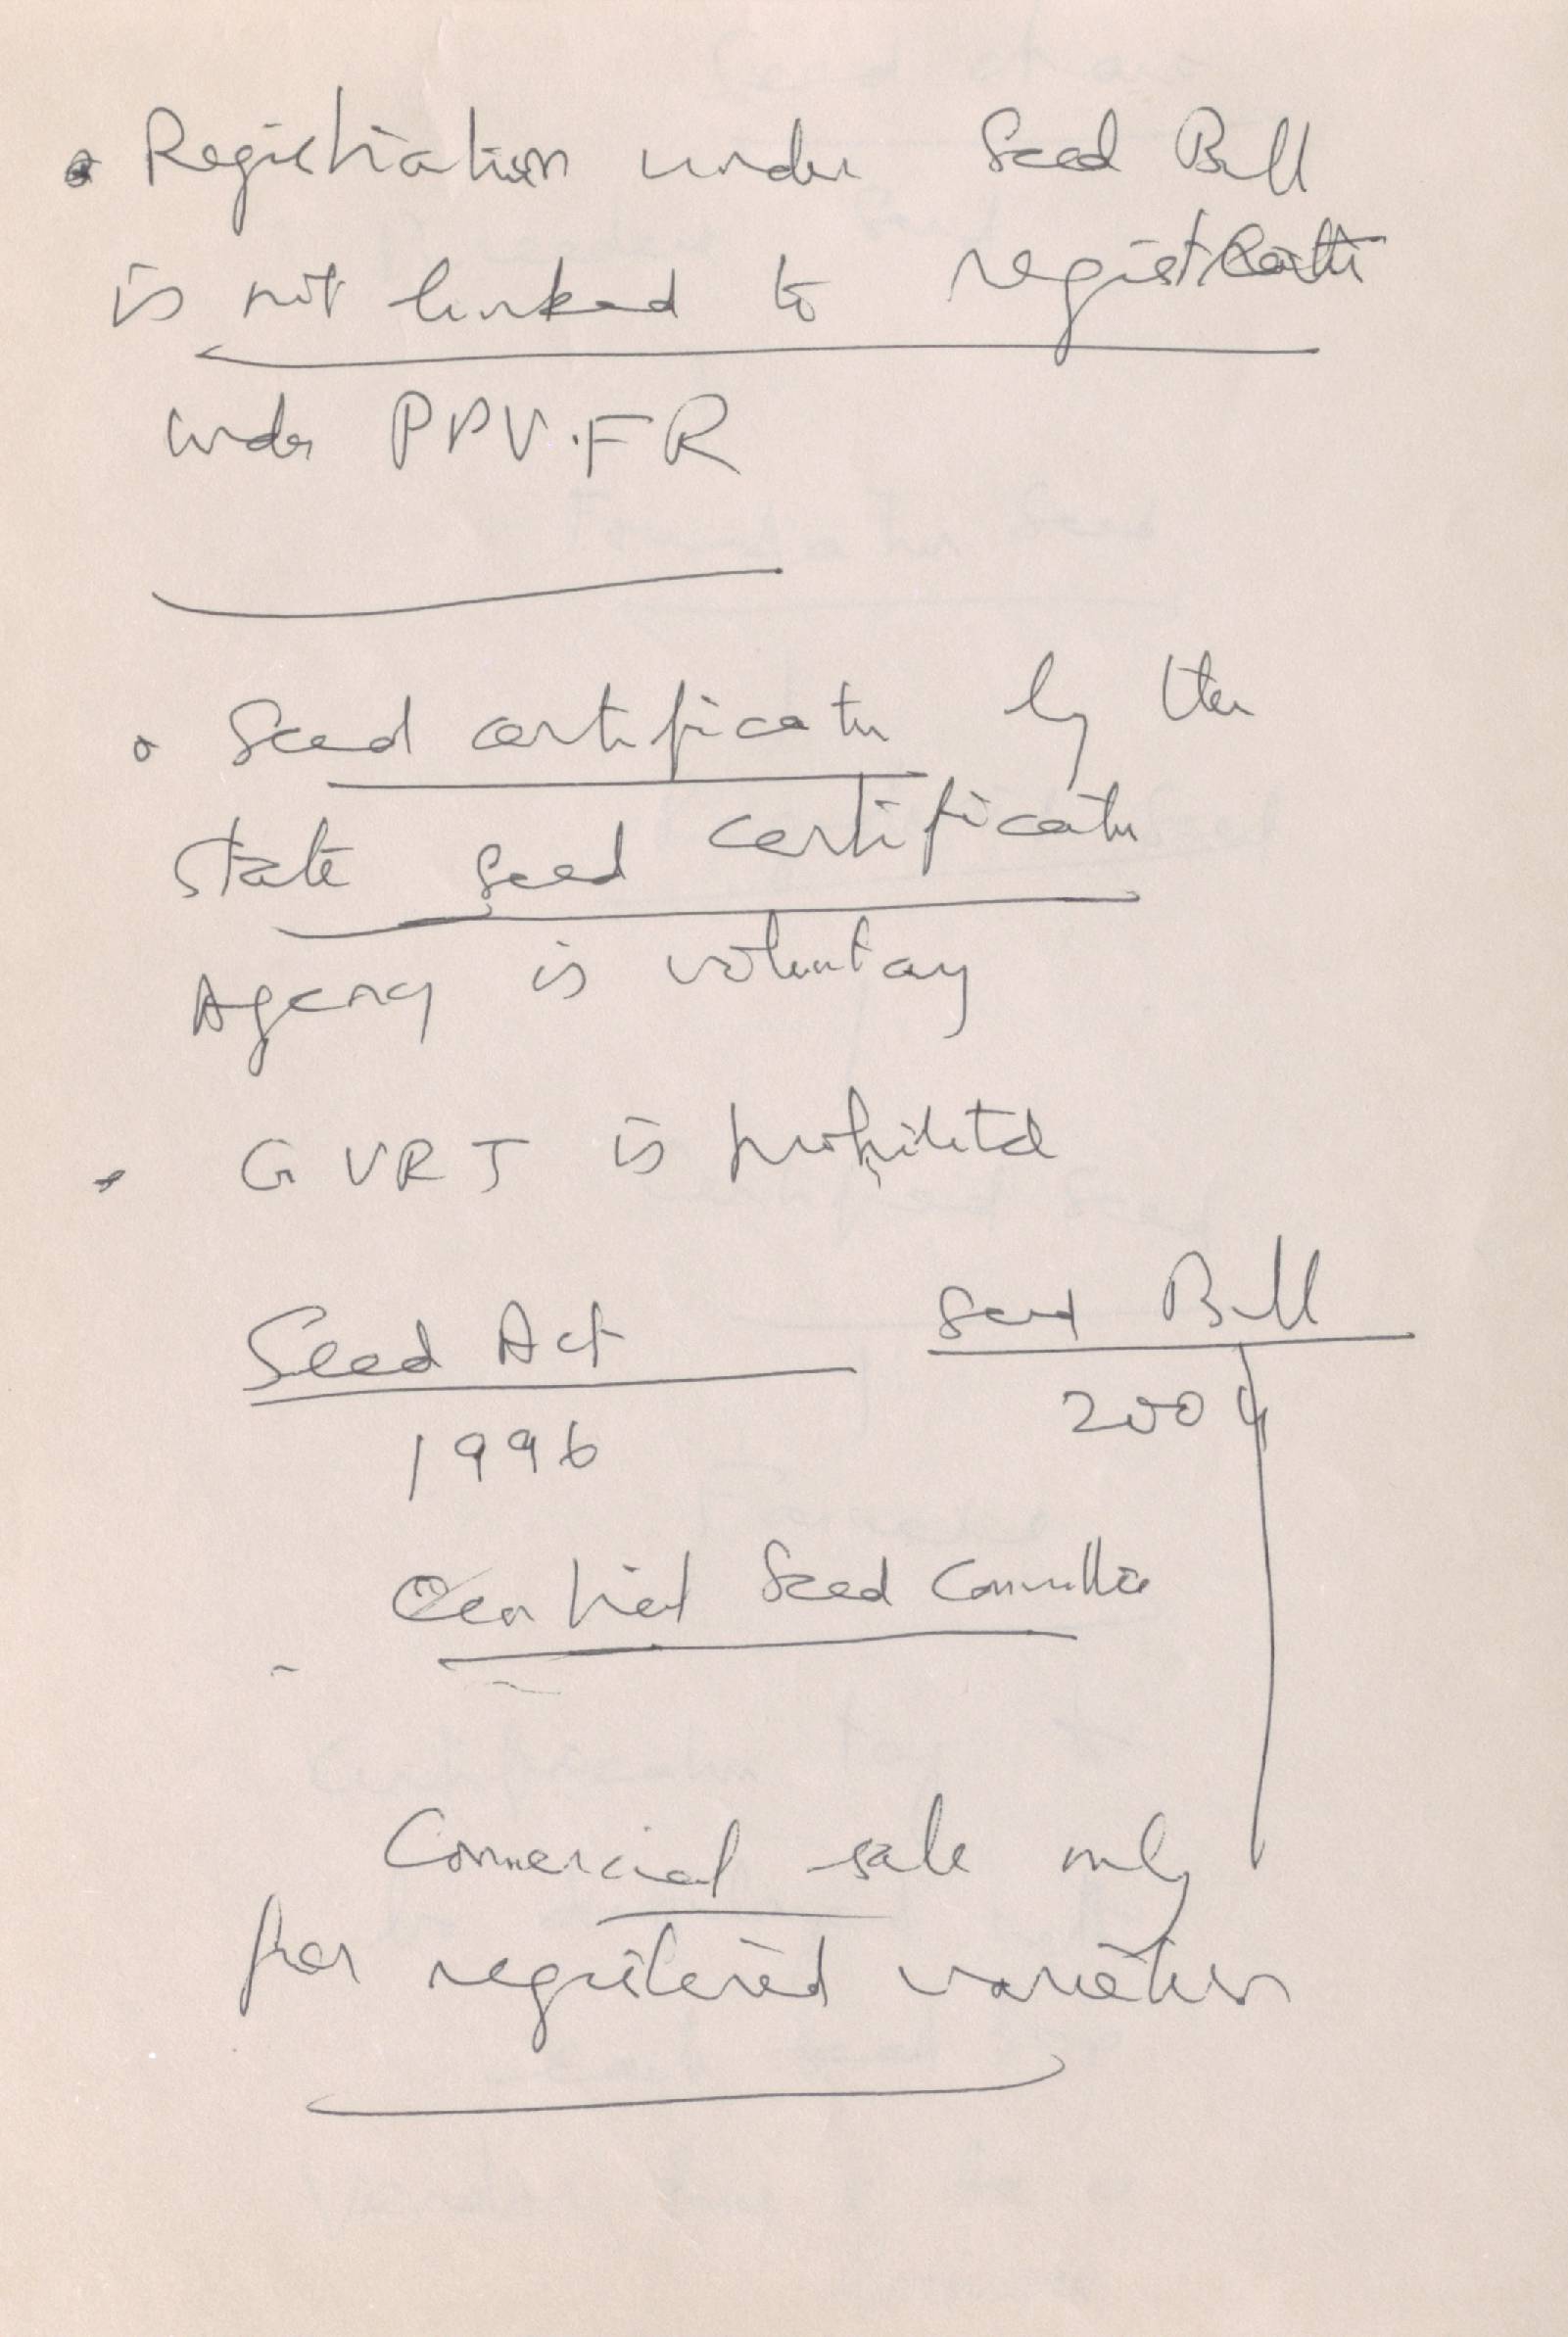 • Registration under Seed Bill
is not linked to registration
under PPV.FR
• Seed certification by the
State seed certification
Agency is voluntary
• GURT is prohibited
Seed Act Seed Bill
1996 2004
Central Seed Committee
Commercial sale only
for registered varieties